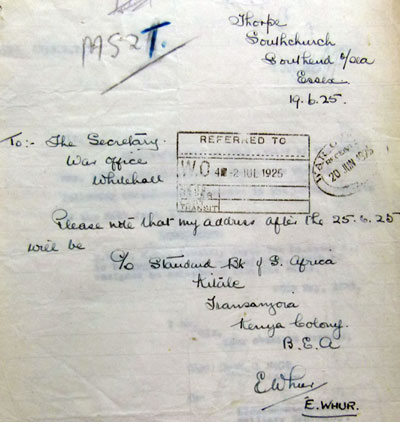 MS2T.
Thorpe
Southchurch
Southend o/sea
Essex
19.6.25.
To:- The Secretary.
War Office
Whitehall
REFERRED TO
W.O 4 -2 JUL 1925
TRANSIT
WAR OFFICE
20 JUN 1925
Please note that my address after the 25.6.25
will be
c/o Standard Bk of S. Africa
Kitale
Transanzora
Kenya Colony.
B.E.A
E Whur
E. WHUR.